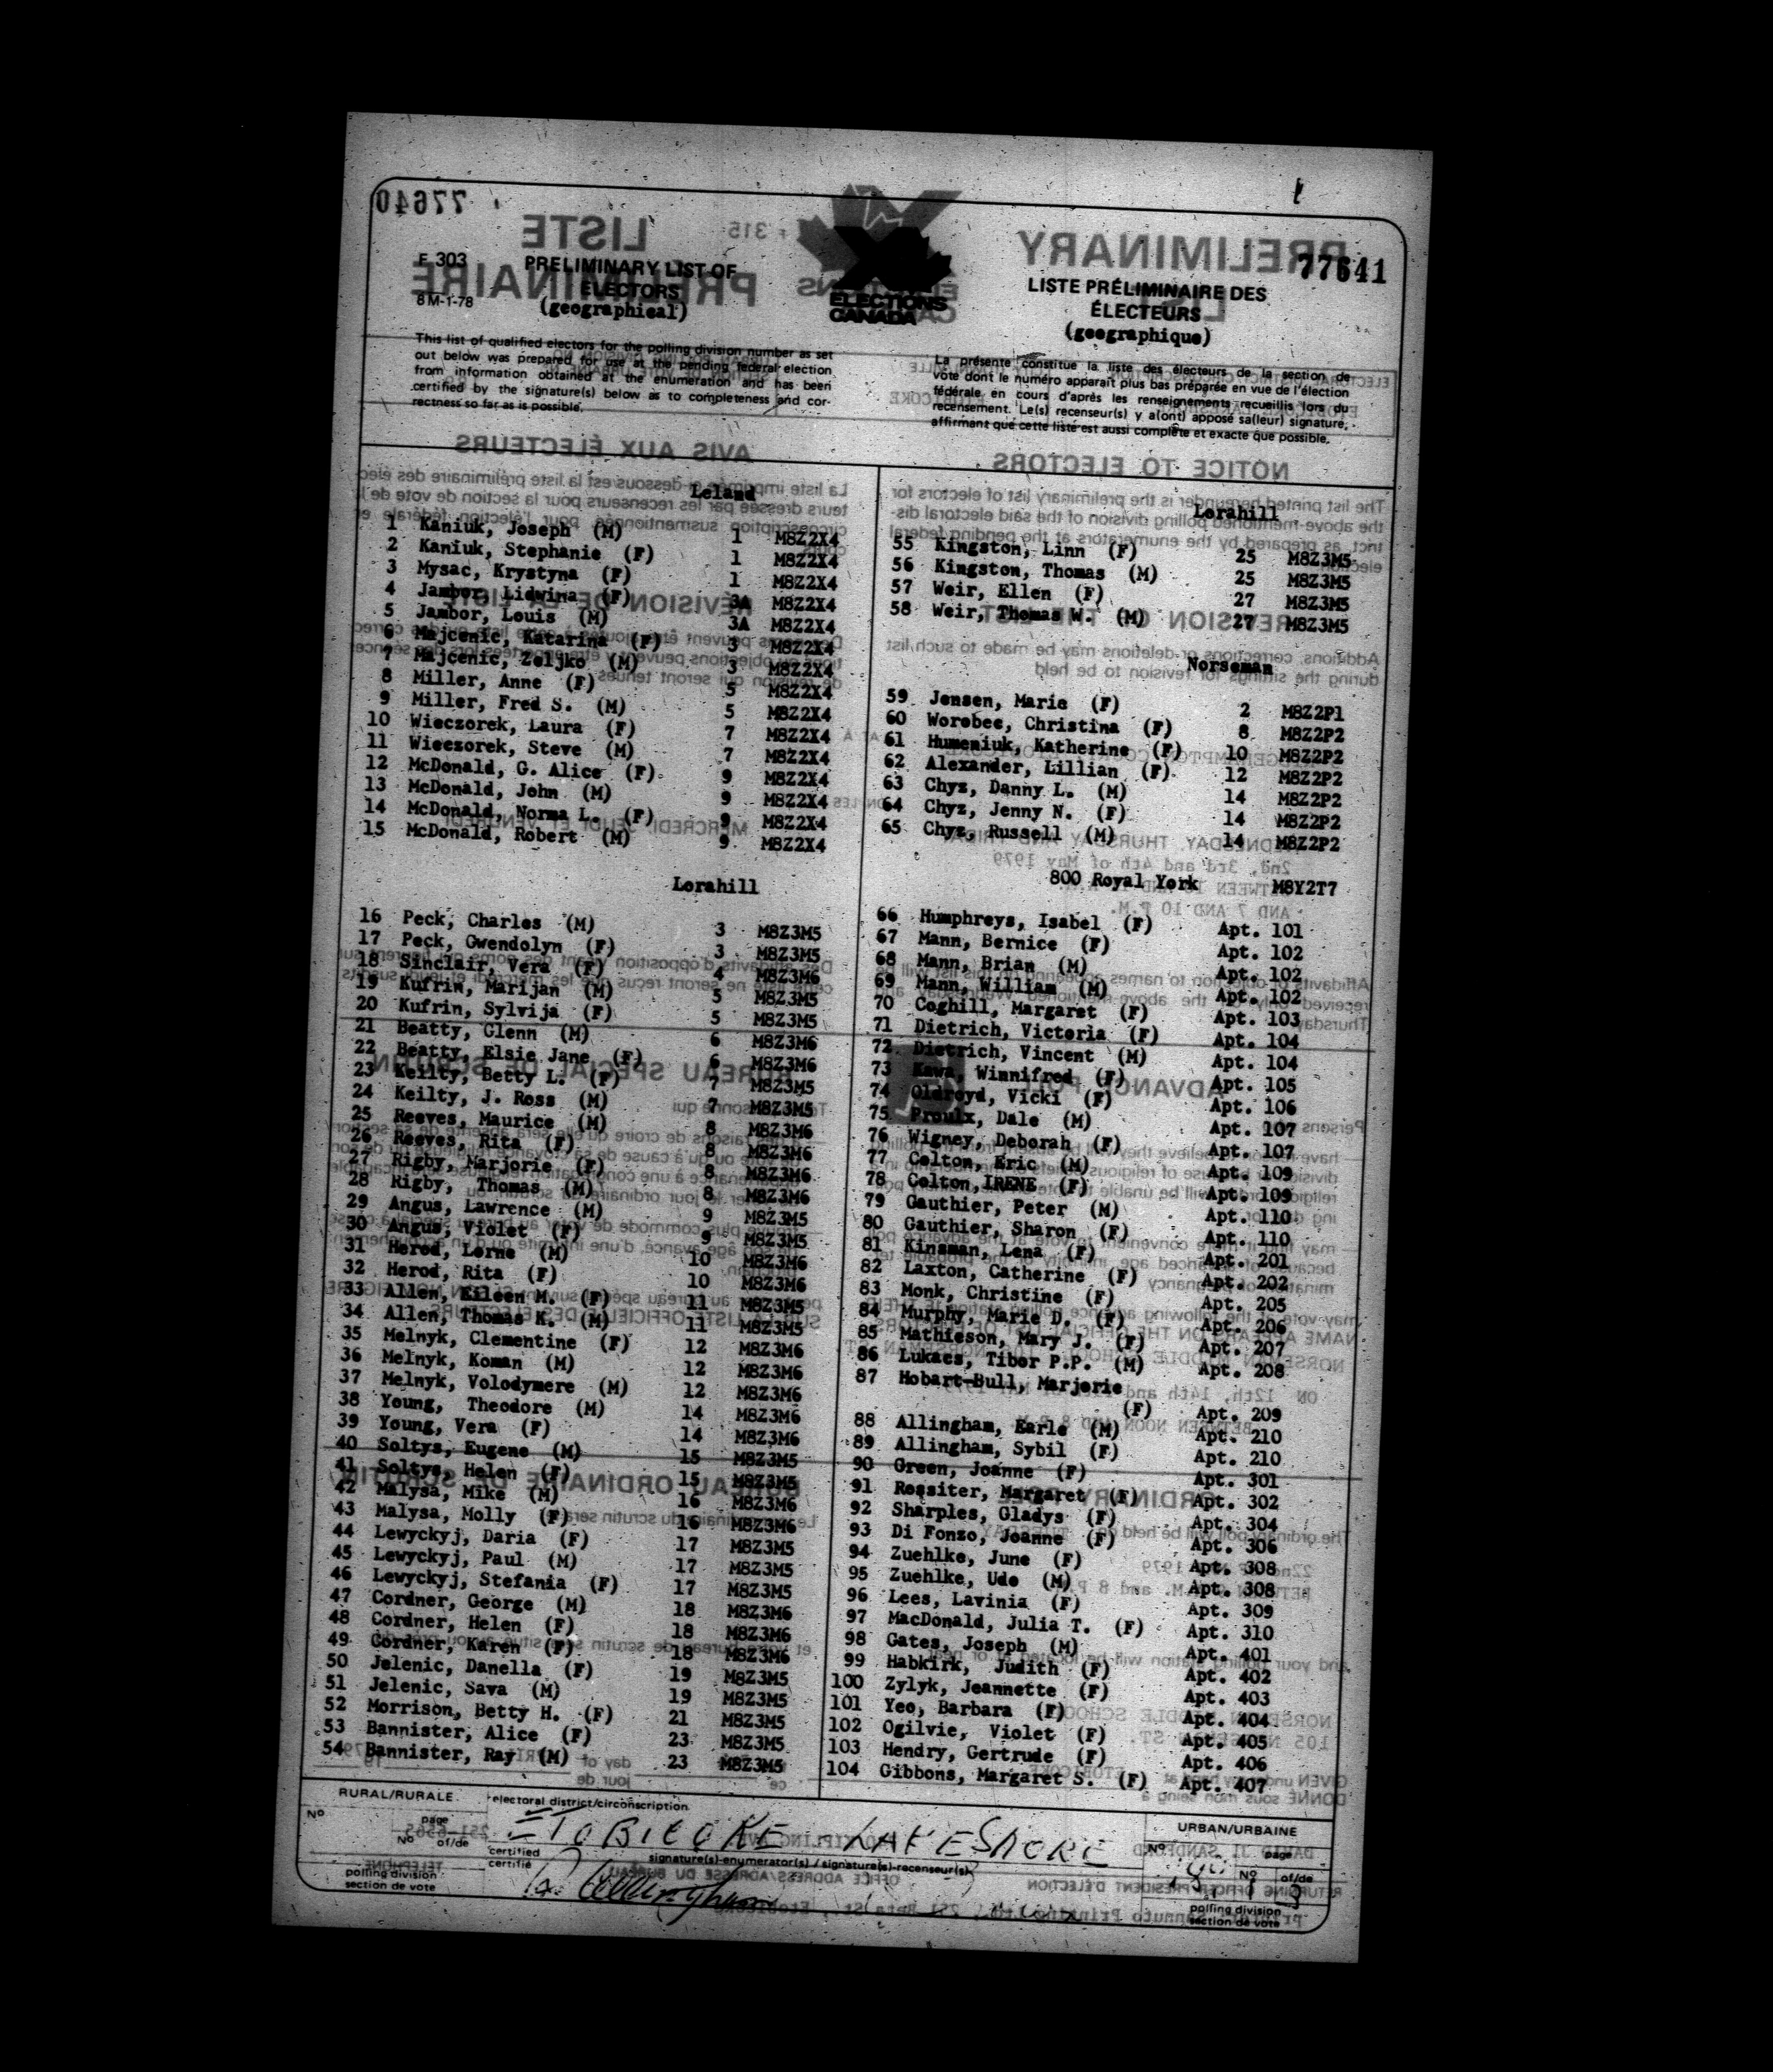 77641
F 303
8 M-1-78
PRELIMINARY LIST OF
ELECTORS
(geographical)
ELECTIONS
CANADA
LISTE PRÉLIMINAIRE DES
ÉLECTEURS
(geographique)
This list of qualified electors for the polling division number as set
out below was prepared for use at the pending federal election
from information obtained at the enumeration and has been
certified by the signature(s) below as to completeness and cor-
rectness so far as is possible.
La présente constitue la liste des électeurs de la section de
vote dont le numéro apparaît plus bas préparée en vue de l'élection
fédérale en cours d'après les renseignements recueillis lors du
recensement. Le(s) recenseur(s) y a(ont) apposé sa(leur) signature,
affirmant que cette liste est aussi complète et exacte que possible.
Leland
1 Kaniuk, Joseph (M) 1 M8Z2X4
2 Kaniuk, Stephanie (F) 1 M8Z2X4
3 Mysac, Krystyna (F) 1 M8Z2X4
4 Jambor, Lidwina (F) 3A M8Z2X4
5 Jambor, Louis (M) 3A M8Z2X4
6 Majcenic, Katarina (F) 3 M8Z2X4
7 Majcenic, Zeljko (M) 3 M8Z2X4
8 Miller, Anne (F) 5 M8Z2X4
9 Miller, Fred S. (M) 5 M8Z2X4
10 Wieczorek, Laura (F) 7 M8Z2X4
11 Wieczorek, Steve (M) 7 M8Z2X4
12 McDonald, G. Alice (F) 9 M8Z2X4
13 McDonald, John (M) 9 M8Z2X4
14 McDonald, Norma L. (F) 9 M8Z2X4
15 McDonald, Robert (M) 9 M8Z2X4
Lorahill
16 Peck, Charles (M) 3 M8Z3M5
17 Peck, Gwendolyn (F) 3 M8Z3M5
18 Sinclair, Vera (F) 4 M8Z3M6
19 Kufrin, Marijan (M) 5 M8Z3M5
20 Kufrin, Sylvija (F) 5 M8Z3M5
21 Beatty, Glenn (M) 6 M8Z3M6
22 Beatty, Elsie Jane (F) 6 M8Z3M6
23 Keilty, Betty L. (F) 7 M8Z3M5
24 Keilty, J. Ross (M) 7 M8Z3M5
25 Reeves, Maurice (M) 8 M8Z3M6
26 Reeves, Rita (F) 8 M8Z3M6
27 Rigby, Marjorie (F) 8 M8Z3M6
28 Rigby, Thomas (M) 8 M8Z3M6
29 Angus, Lawrence (M) 9 M8Z3M5
30 Angus, Violet (F) 9 M8Z3M5
31 Herod, Lorne (M) 10 M8Z3M6
32 Herod, Rita (F) 10 M8Z3M6
33 Allen, Eileen M. (F) 11 M8Z3M5
34 Allen, Thomas K. (M) 11 M8Z3M5
35 Melnyk, Clementine (F) 12 M8Z3M6
36 Melnyk, Koman (M) 12 M8Z3M6
37 Melnyk, Volodymere (M) 12 M8Z3M6
38 Young, Theodore (M) 14 M8Z3M6
39 Young, Vera (F) 14 M8Z3M6
40 Soltys, Eugene (M) 15 M8Z3M5
41 Soltys, Helen (F) 15 M8Z3M5
42 Malysa, Mike (M) 16 M8Z3M6
43 Malysa, Molly (F) 16 M8Z3M6
44 Lewyckyj, Daria (F) 17 M8Z3M5
45 Lewyckyj, Paul (M) 17 M8Z3M5
46 Lewyckyj, Stefania (F) 17 M8Z3M5
47 Cordner, George (M) 18 M8Z3M6
48 Cordner, Helen (F) 18 M8Z3M6
49 Cordner, Karen (F) 18 M8Z3M6
50 Jelenic, Danella (F) 19 M8Z3M5
51 Jelenic, Sava (M) 19 M8Z3M5
52 Morrison, Betty H. (F) 21 M8Z3M5
53 Bannister, Alice (F) 23 M8Z3M5
54 Bannister, Ray (M) 23 M8Z3M5
Lorahill
55 Kingston, Linn (F) 25 M8Z3M5
56 Kingston, Thomas (M) 25 M8Z3M5
57 Weir, Ellen (F) 27 M8Z3M5
58 Weir, Thomas W. (M) 27 M8Z3M5
Norseman
59 Jensen, Marie (F) 2 M8Z2P1
60 Worobec, Christina (F) 8 M8Z2P2
61 Humeniuk, Katherine (F) 10 M8Z2P2
62 Alexander, Lillian (F) 12 M8Z2P2
63 Chyz, Danny L. (M) 14 M8Z2P2
64 Chyz, Jenny N. (F) 14 M8Z2P2
65 Chyz, Russell (M) 14 M8Z2P2
800 Royal York M8Y2T7
66 Humphreys, Isabel (F) Apt. 101
67 Mann, Bernice (F) Apt. 102
68 Mann, Brian (M) Apt. 102
69 Mann, William (M) Apt. 102
70 Coghill, Margaret (F) Apt. 103
71 Dietrich, Victoria (F) Apt. 104
72 Dietrich, Vincent (M) Apt. 104
73 Kawa, Winnifred (F) Apt. 105
74 Oldroyd, Vicki (F) Apt. 106
75 Proulx, Dale (M) Apt. 107
76 Wigney, Deborah (F) Apt. 107
77 Colton, Eric (M) Apt. 109
78 Colton, IRENE (F) Apt. 109
79 Gauthier, Peter (M) Apt. 110
80 Gauthier, Sharon (F) Apt. 110
81 Kinsman, Lena (F) Apt. 201
82 Laxton, Catherine (F) Apt. 202
83 Monk, Christine (F) Apt. 205
84 Murphy, Marie D. (F) Apt. 206
85 Mathieson, Mary J. (F) Apt. 207
86 Lukacs, Tibor P.P. (M) Apt. 208
87 Hobart-Bull, Marjorie
(F) Apt. 209
88 Allingham, Earle (M) Apt. 210
89 Allingham, Sybil (F) Apt. 210
90 Green, Joanne (F) Apt. 301
91 Rossiter, Margaret (F) Apt. 302
92 Sharples, Gladys (F) Apt. 304
93 Di Fonzo, Joanne (F) Apt. 306
94 Zuehlke, June (F) Apt. 308
95 Zuehlke, Udo (M) Apt. 308
96 Lees, Lavinia (F) Apt. 309
97 MacDonald, Julia T. (F) Apt. 310
98 Gates, Joseph (M) Apt. 401
99 Habkirk, Judith (F) Apt. 402
100 Zylyk, Jeannette (F) Apt. 403
101 Yeo, Barbara (F) Apt. 404
102 Ogilvie, Violet (F) Apt. 405
103 Hendry, Gertrude (F) Apt. 406
104 Gibbons, Margaret S. (F) Apt. 407
RURAL/RURALE
No page
No of/de
polling division
section de vote
electoral district/circonscription
ETOBICOKE LAKESHORE
certified
certifié
signature(s)-enumerator(s) / signature(s)-recenseur(s)
URBAN/URBAINE
No page
No of/de
polling division
section de vote